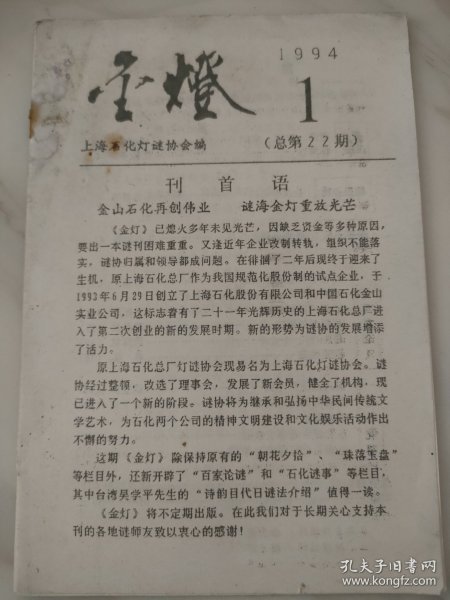 金燈
1994
1
上海石化灯谜协会编
(总第22期)
刊首语
金山石化再创伟业 谜海金灯重放光芒
《金灯》已熄火多年未见光芒，因缺乏资金等多种原因，
要出一本谜刊困难重重。又逢近年企业改制转轨，组织不能落
实，谜协归属和领导都成问题。在徘徊了二年后现终于迎来了
生机，原上海石化总厂作为我国规范化股份制的试点企业，于
1993年6月29日创立了上海石化股份有限公司和中国石化金山
实业公司，这标志着有了二十一年光辉历史的上海石化总厂进
入了第二次创业的新的发展时期。新的形势为谜协的发展增添
了活力。
原上海石化总厂灯谜协会现易名为上海石化灯谜协会。谜
协经过整顿，改选了理事会，发展了新会员，健全了机构，现
已进入了一个新的阶段。谜协将为继承和弘扬中华民间传统文
学艺术，为石化两个公司的精神文明建设和文化娱乐活动作出
不懈的努力。
这期《金灯》除保持原有的“朝花夕拾”、“珠落玉盘”
等栏目外，还新开辟了“百家论谜”和“石化谜事”等栏目，
其中台湾吴学平先生的“诗韵目代日谜法介绍”值得一读。
《金灯》将不定期出版。在此我们对于长期关心支持本
刊的各地谜师友致以衷心的感谢！
孔夫子旧书网
www.kongfz.com